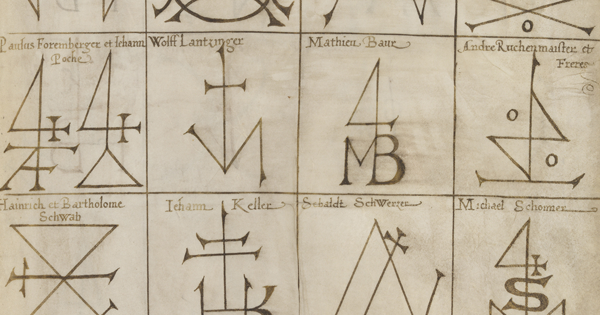 Paulus Foremberger et Iehann
Poche
Wolff Lantzinger
Mathieu Baur
Andre Ruchenmaister et
Freres
4 4
MB
o
o
o
Hainrich et Bartholome
Schwab
Iehann Keller
Sebaldt Schwerzer
Michael Schonner
K
S